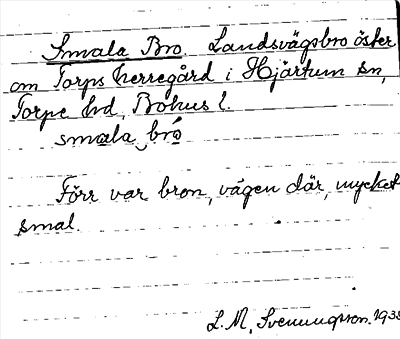 Smala Bro. Landsvägsbro öster
om Torps herregård i Hjärtum sn,
Torpe hd, Bohus l.
smala bro
Förr var bron, vägen där, mycket
smal.
L. M. Svenungsson. 1935